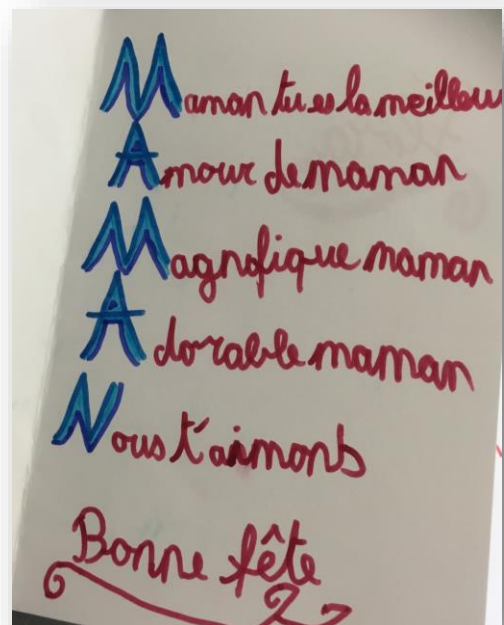 Maman tu es la meilleu
Amour de maman
Magnifique maman
Adorable maman
Nous t'aimons
Bonne fête